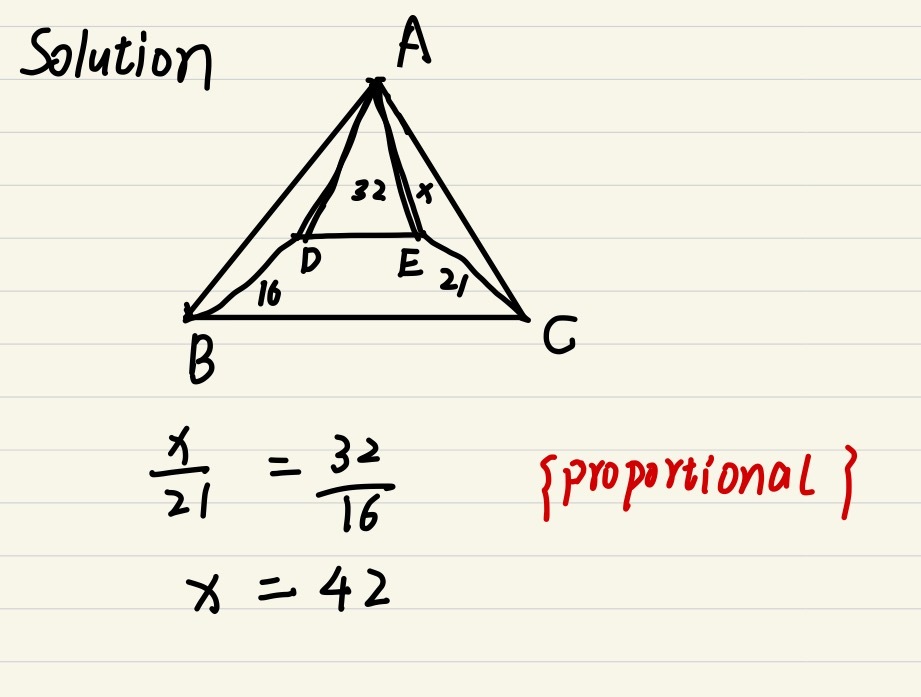 Solution
A
32 x
D E
16 21
B C
x/21 = 32/16 {proportional}
x = 42